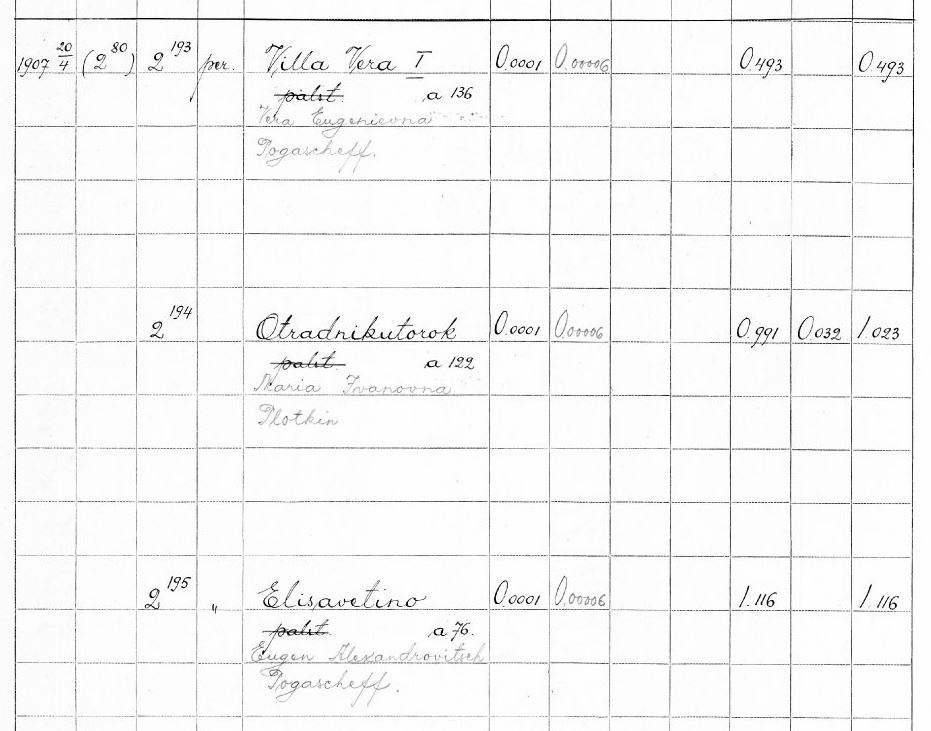 1907 20/4 (2^80) 2^193 per. Villa Vera I 0.0001 0.00006 0.493 0.493
palst. a 136
Vera Eugenievna
Pogascheff.
2^194 Otradnikutorok 0.0001 0.00006 0.991 0.032 1.023
palst. a 122
Maria Ivanovna
Plotkin
2^195 " Elisavetino 0.0001 0.00006 1.116 1.116
palst. a 76.
Eugen Alexandrovitsch
Pogascheff.